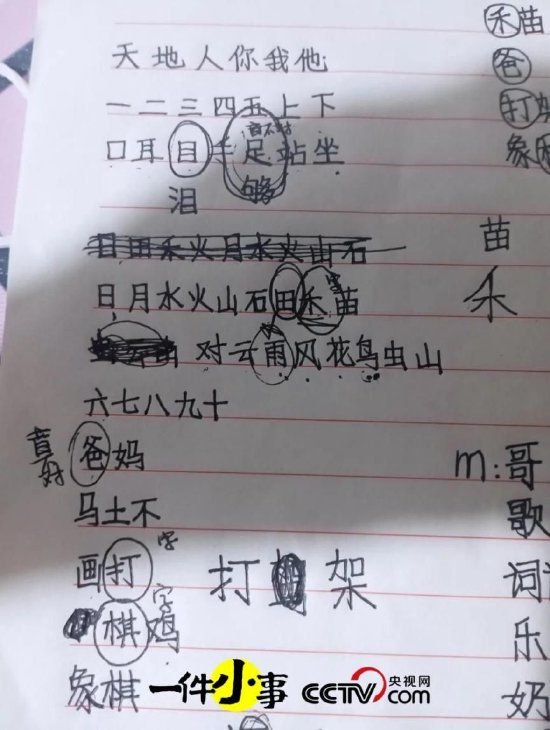 禾苗
天地人你我他
爸
一二三四五上下
打
口耳目手足站坐
象
泪
够
苗
日田禾火月水火山石
日月水火山石田禾苗
字
禾
对云雨风花鸟虫山
六七八九十
爸妈
m:哥
马土不
歌
字
画打
打架
词
字
棋鸡
乐
象棋
奶
一件小事
CCTV.com
央视网